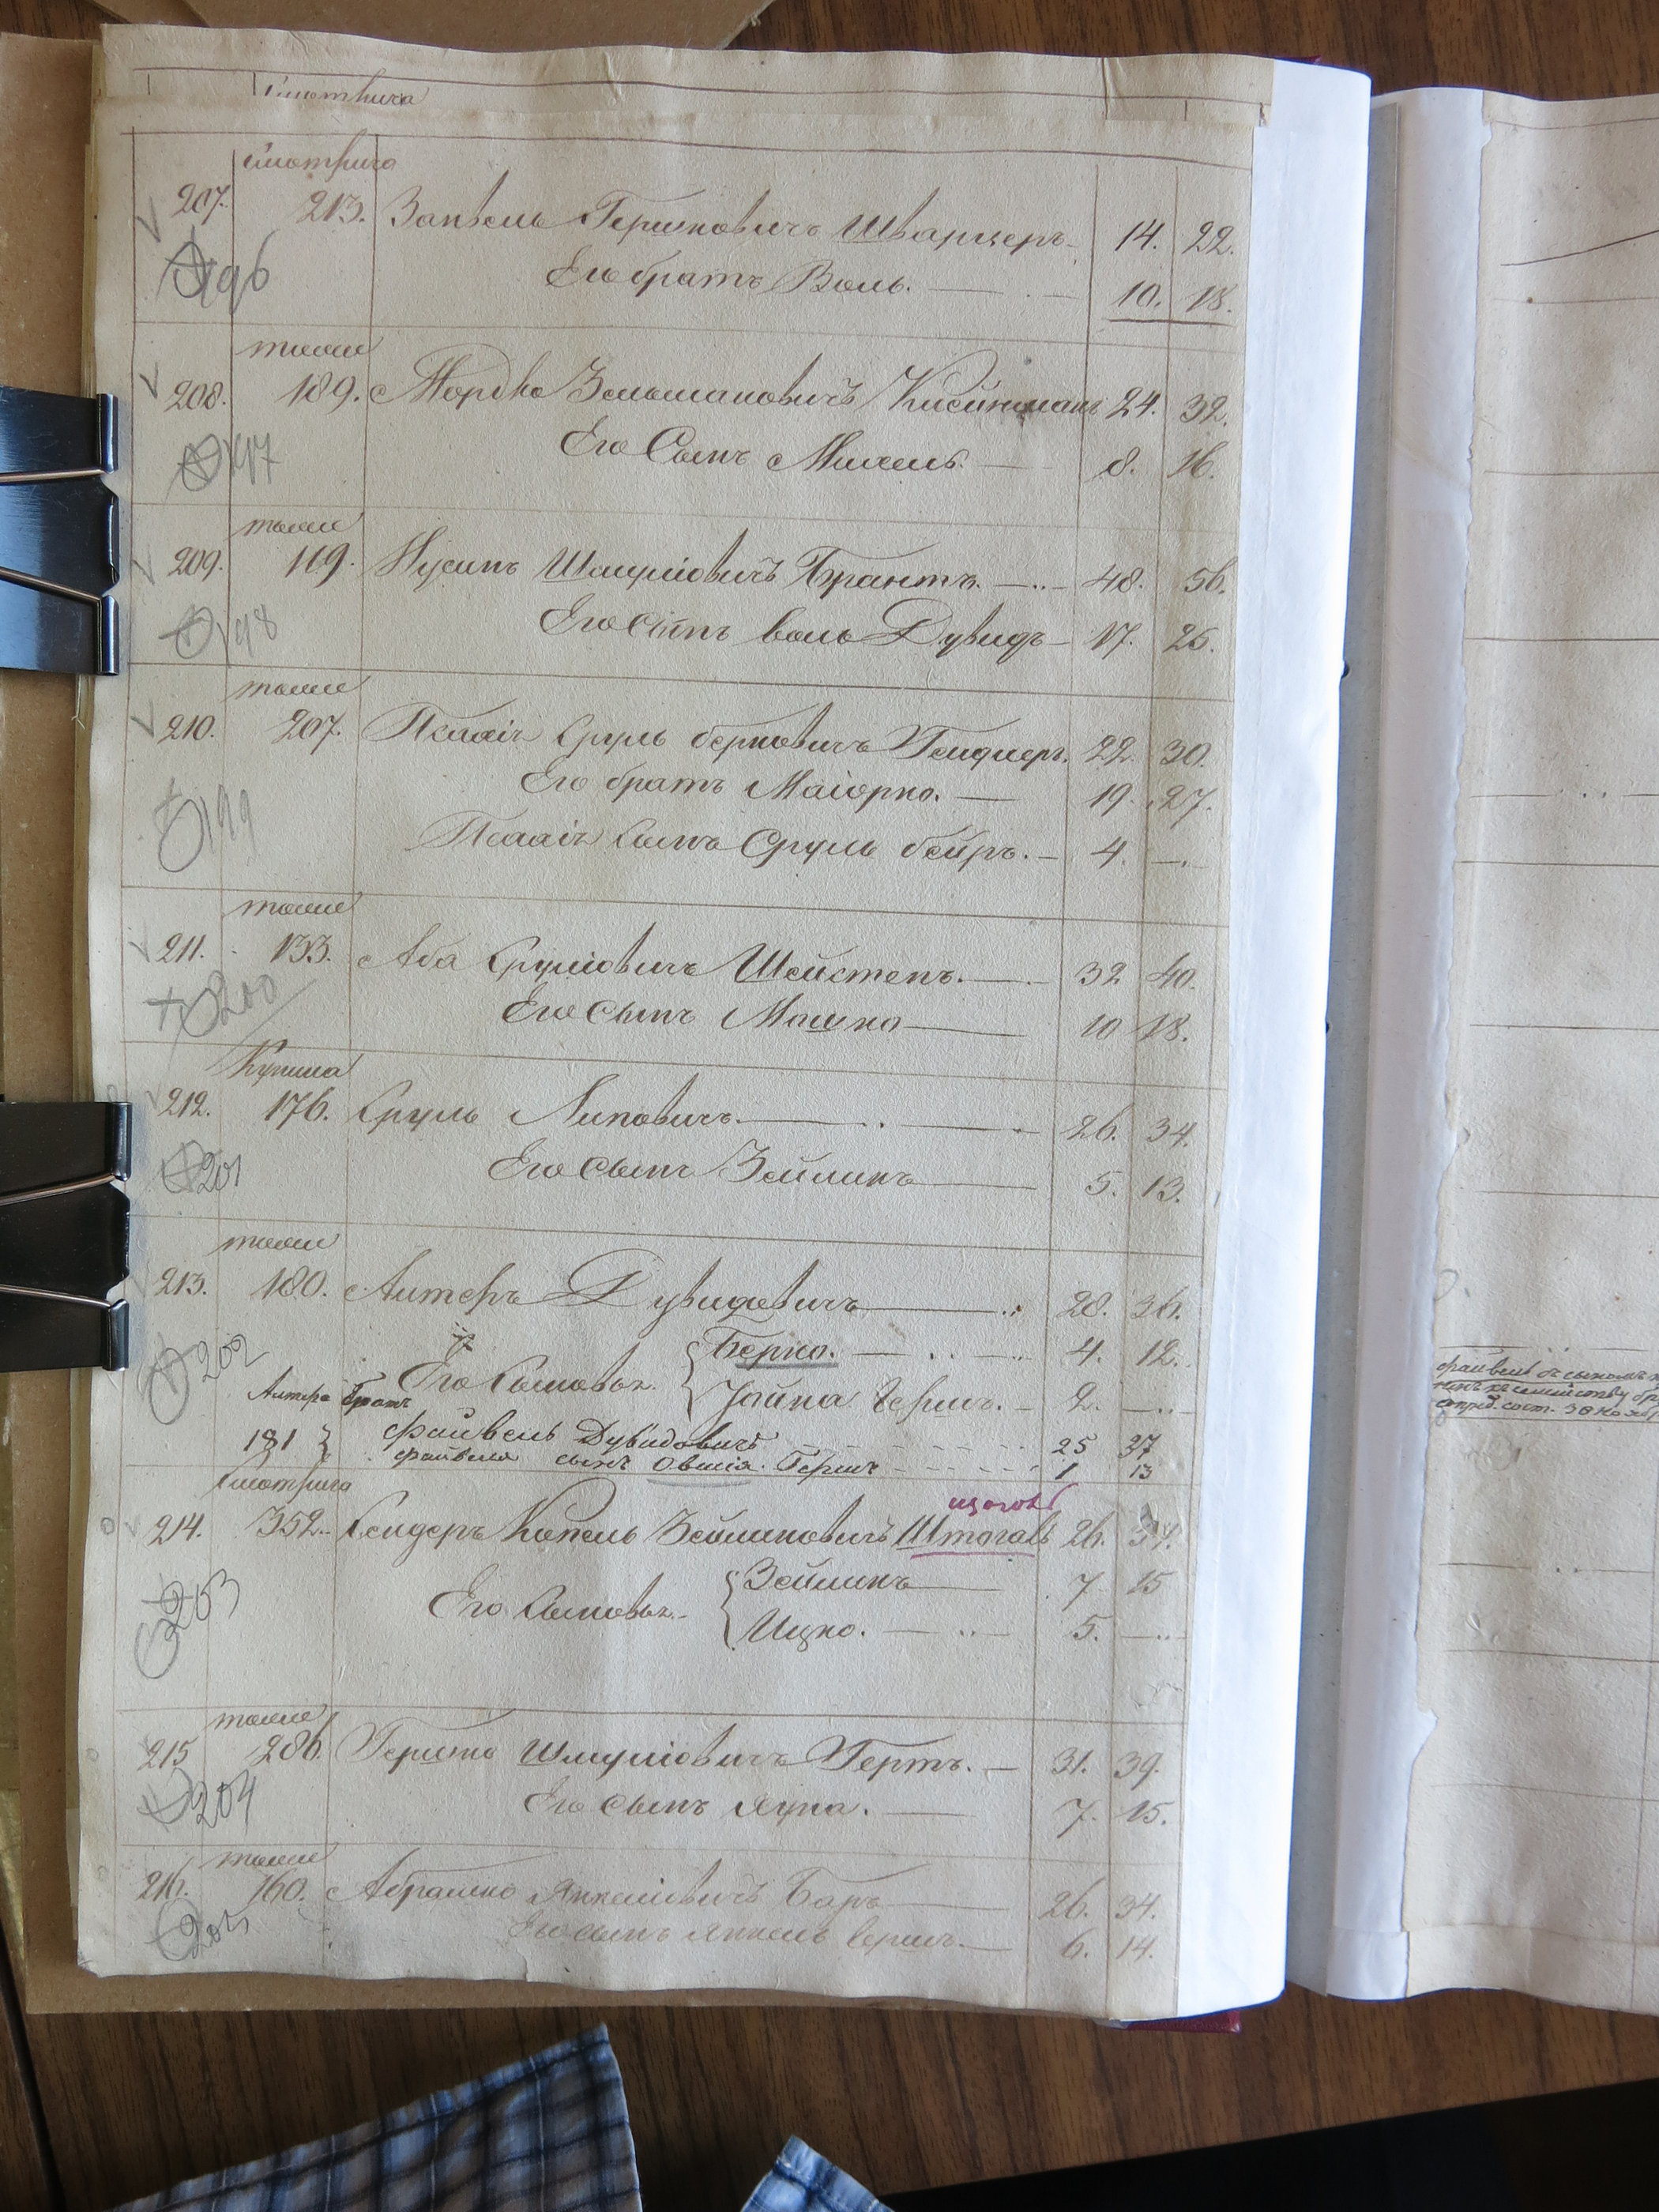 Смотрича
Смотрича
207. 213. Занвель Гершковичъ Шварцеръ 14. 22.
196
Его братъ Воль. 10. 18.
тоже
208. 189. Мордко Зельмановичъ 24. 32.
197
Его Сынъ Михель. 8. 16.
тоже
209. 119. Нусинъ Шмулiовичъ Брантъ. 48. 56.
198
Его Сынъ Воль Дувидъ 17. 25.
тоже
210. 207. Псахiя Сруль Берковичъ 22. 30.
199
Его братъ Маiорко. 19. 27.
Псахiя Сынъ Сруль Бейръ. 4.
тоже
211. 133. Аба Срулiовичъ Шейстенъ. 32 40.
200
Его Сынъ Мошко 10 18.
Купина
212. 176. Сруль Липовичъ. 26. 34.
201
Его Сынъ Зейликъ 5. 13.
тоже
213. 180. Алтеръ Дувидовичъ 28. 36.
202
Его Сыновья { Берко. 4. 12.
Іойна Гершъ. 2.
Алтера братъ
181 } Файвель Дувидовичъ 25 37
Файвеля сынъ Овшiя Гершъ 1 13
Смотрича
214. 352. Сендеръ Копель Зейликовичъ Штогавъ 26. 34.
203
Его Сыновья { Зейликъ 7 15
Ицко. 5.
тоже
215 286. Гершко Шмулiовичъ Гертъ. 31. 39.
204
Его сынъ Лупа. 7. 15.
тоже
216. 160. Абрамко Янкелiовичъ Баръ 26. 34.
205
Его сынъ Янкель Гершъ. 6. 14.
Файвель съ сыномъ